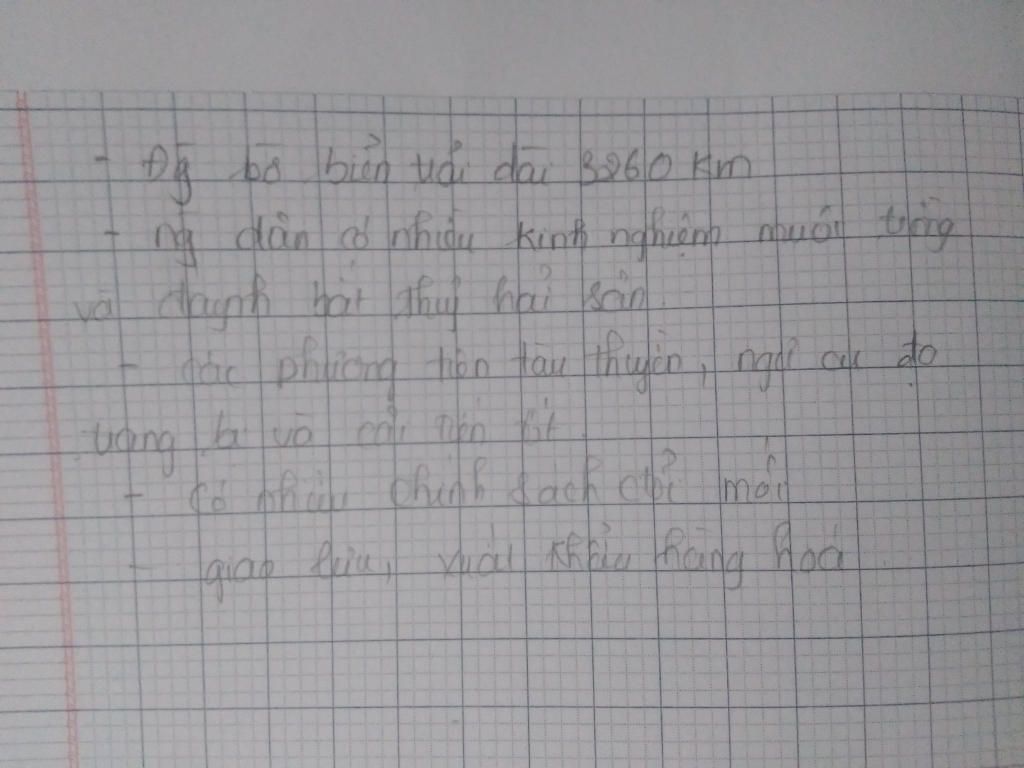 - Đg bờ biển trải dài 3260 km
- ng dân có nhiều kinh nghiệm nuôi trồng
và đánh bắt thuỷ hải sản.
- các phương tiện tàu thuyền, ngư cụ đc
trang bị và cải tiến tốt.
- có nhiều chính sách đổi mới
- giao lưu, xuất khẩu hàng hoá